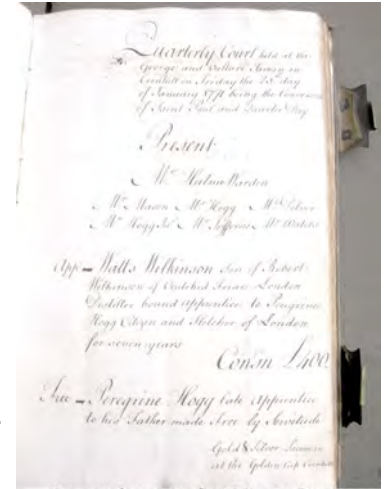 Quarterly Court held at the
George and Vulture Tavern in
Cornhill on Friday the 25th day
of January 1771 being the Conversion
of Saint Paul and Quarter Day
Present
Mr Hulme Warden
Mr Mason Mr Hogg Mr
Mr Hogg Jr Mr Jefferies Mr
App= Watts Wilkinson Son of Robert
Wilkinson of London
Distiller bound apprentice to Peregrine
Hogg Citizen and of London
for seven years
Consn £400
Free = Peregrine Hogg late Apprentice
to his Father made free by Servitude
Gold & Silver
at the Golden Cup Cornhill